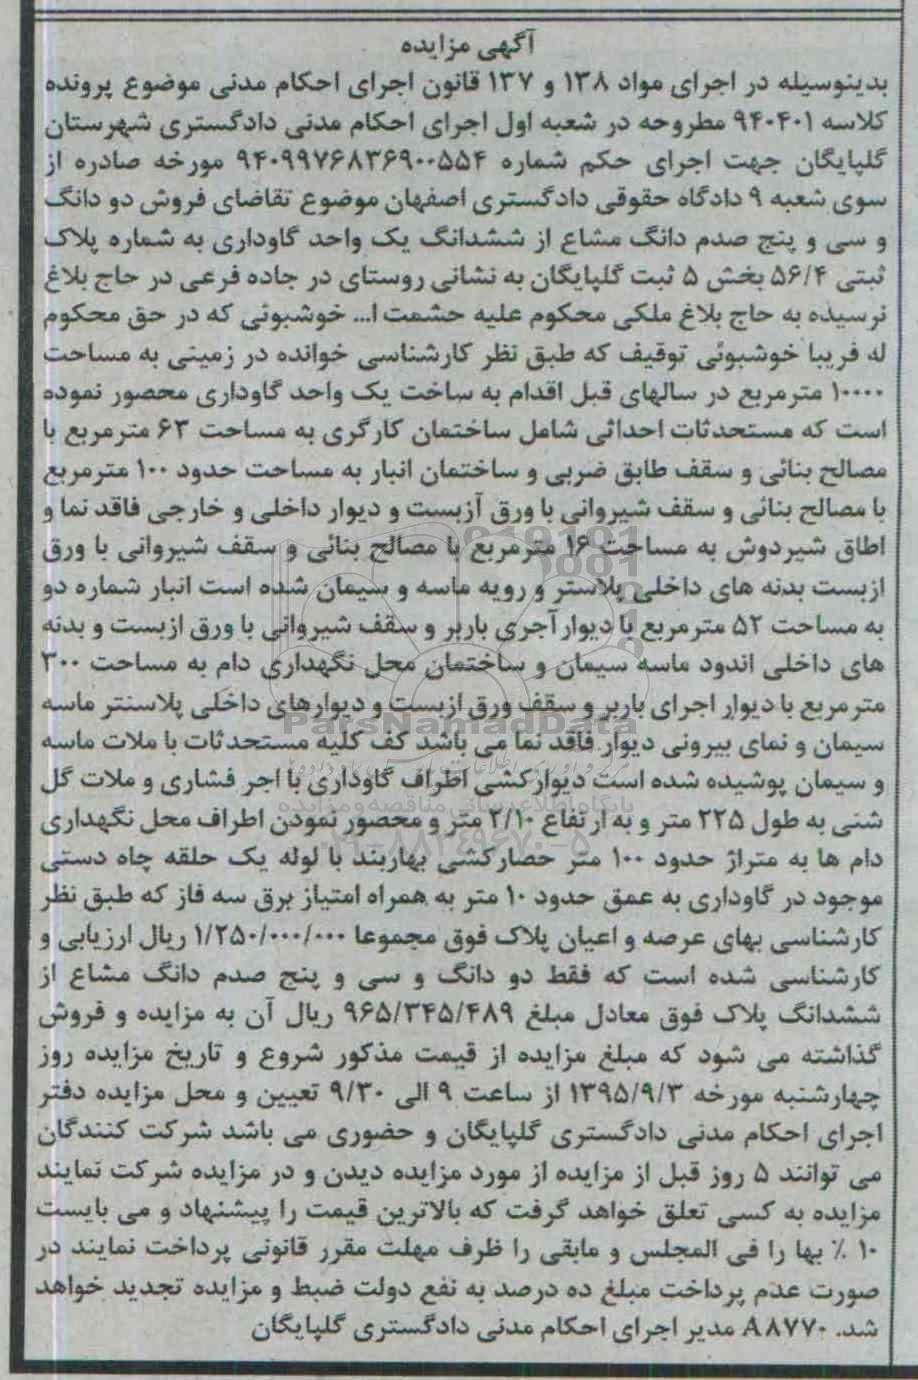 آگهی مزایده
بدینوسیله در اجرای مواد ۱۳۸ و ۱۳۷ قانون اجرای احکام مدنی موضوع پرونده
کلاسه ۹۴۰۴۰۱ مطروحه در شعبه اول اجرای احکام مدنی دادگستری شهرستان
گلپایگان جهت اجرای حکم شماره ۹۴۰۹۹۷۶۸۳۶۹۰۰۵۵۴ مورخه صادره از
سوی شعبه ۹ دادگاه حقوقی دادگستری اصفهان موضوع تقاضای فروش دو دانگ
و سی و پنج صدم دانگ مشاع از ششدانگ یک واحد گاوداری به شماره پلاک
ثبتی ۵۶/۴ بخش ۵ ثبت گلپایگان به نشانی روستای در جاده فرعی در حاج بلاغ
نرسیده به حاج بلاغ ملکی محکوم علیه حشمت ا... خوشبوئی که در حق محکوم
له فریبا خوشبوئی توقیف که طبق نظر کارشناسی خوانده در زمینی به مساحت
۱۰۰۰۰ مترمربع در سالهای قبل اقدام به ساخت یک واحد گاوداری محصور نموده
است که مستحدثات احداثی شامل ساختمان کارگری به مساحت ۶۳ مترمربع با
مصالح بنائی و سقف طابق ضربی و ساختمان انبار به مساحت حدود ۱۰۰ مترمربع
با مصالح بنائی و سقف شیروانی با ورق آزبست و دیوار داخلی و خارجی فاقد نما و
اطاق شیردوش به مساحت ۱۶ مترمربع با مصالح بنائی و سقف شیروانی با ورق
ازبست بدنه های داخلی پلاستر و رویه ماسه و سیمان شده است انبار شماره دو
به مساحت ۵۲ مترمربع با دیوار آجری باربر و سقف شیروانی با ورق ازبست و بدنه
های داخلی اندود ماسه سیمان و ساختمان محل نگهداری دام به مساحت ۳۰۰
مترمربع با دیوار اجرای باربر و سقف ورق ازبست و دیوارهای داخلی پلاسنتر ماسه
سیمان و نمای بیرونی دیوار فاقد نما می باشد کف کلیه مستحدثات با ملات ماسه
و سیمان پوشیده شده است دیوارکشی اطراف گاوداری با اجر فشاری و ملات گل
شنی به طول ۲۲۵ متر و به ارتفاع ۲/۱۰ متر و محصور نمودن اطراف محل نگهداری
دام ها به متراژ حدود ۱۰۰ متر حصارکشی بهاربند با لوله یک حلقه چاه دستی
موجود در گاوداری به عمق حدود ۱۰ متر به همراه امتیاز برق سه فاز که طبق نظر
کارشناسی بهای عرصه و اعیان پلاک فوق مجموعا ۱/۲۵۰/۰۰۰/۰۰۰ ریال ارزیابی و
کارشناسی شده است که فقط دو دانگ و سی و پنج صدم دانگ مشاع از
ششدانگ پلاک فوق معادل مبلغ ۹۶۵/۳۴۵/۴۸۹ ریال آن به مزایده و فروش
گذاشته می شود که مبلغ مزایده از قیمت مذکور شروع و تاریخ مزایده روز
چهارشنبه مورخه ۱۳۹۵/۹/۳ از ساعت ۹ الی ۹/۳۰ تعیین و محل مزایده دفتر
اجرای احکام مدنی دادگستری گلپایگان و حضوری می باشد شرکت کنندگان
می توانند ۵ روز قبل از مزایده از مورد مزایده دیدن و در مزایده شرکت نمایند
مزایده به کسی تعلق خواهد گرفت که بالاترین قیمت را پیشنهاد و می بایست
۱۰ ٪ بها را فی المجلس و مابقی را ظرف مهلت مقرر قانونی پرداخت نمایند در
صورت عدم پرداخت مبلغ ده درصد به نفع دولت ضبط و مزایده تجدید خواهد
شد. A۸۷۷۰ مدیر اجرای احکام مدنی دادگستری گلپایگان
ParsNamadData
پایگاه اطلاع رسانی مناقصه و مزایده